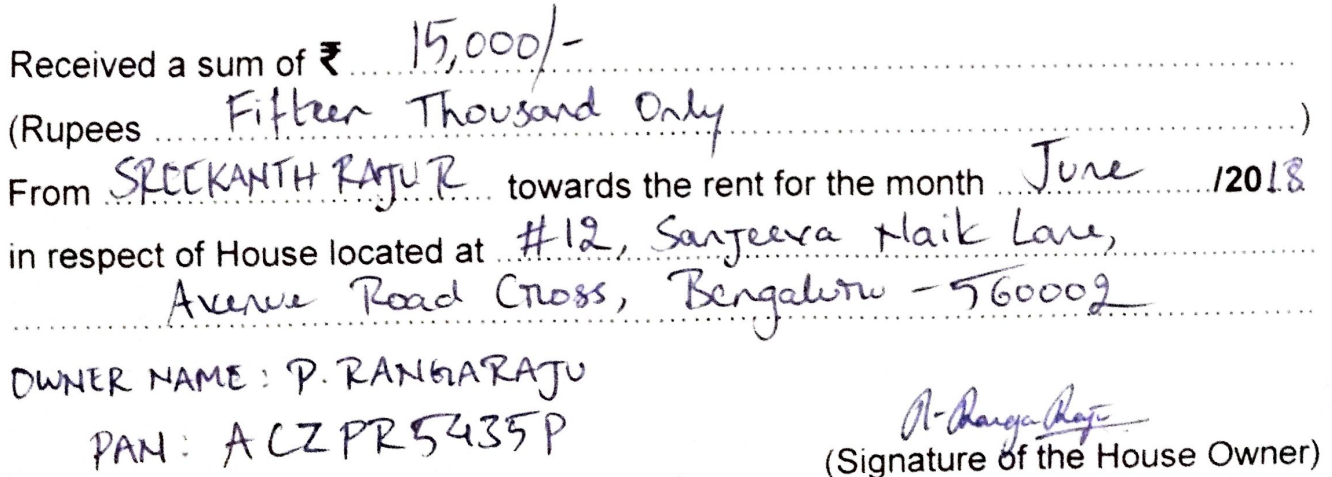 Received a sum of ₹ 15,000/-
(Rupees Fifteen Thousand Only)
From SREEKANTH RAJU R towards the rent for the month June /2018
in respect of House located at #12, Sanjeeva Naik Lane,
Avenue Road Cross, Bengaluru - 560002
OWNER NAME: P. RANGARAJU
PAN: ACZPR5435P
P. Ranga Raju
(Signature of the House Owner)